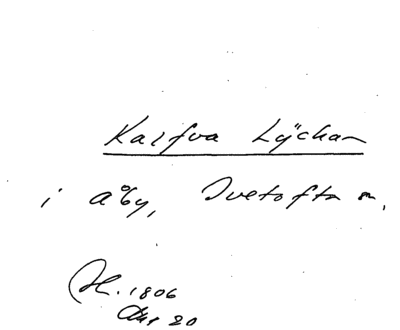 Kalfva Lÿckan
i Åby, Ivetofta sn,
H. 1806
Akt 20